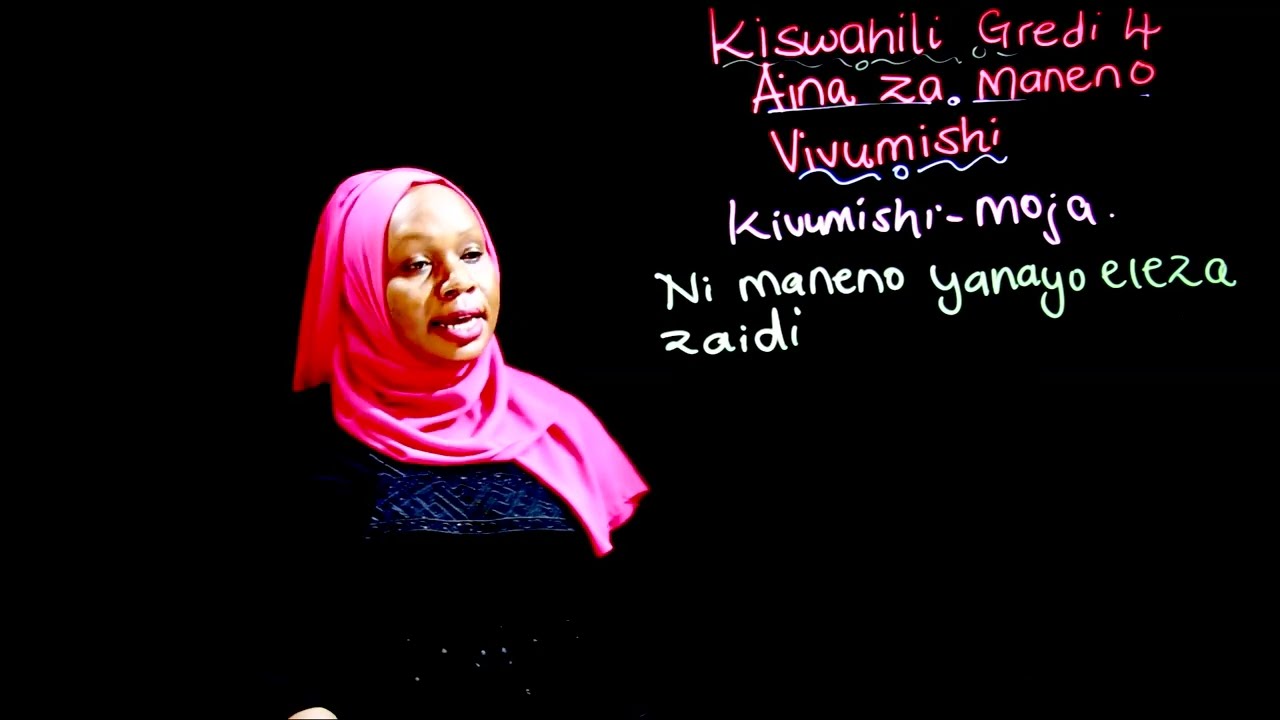 Kiswahili Gredi 4
Aina za Maneno
Vivumishi
Kivumishi - moja.
Ni maneno yanayo eleza
zaidi